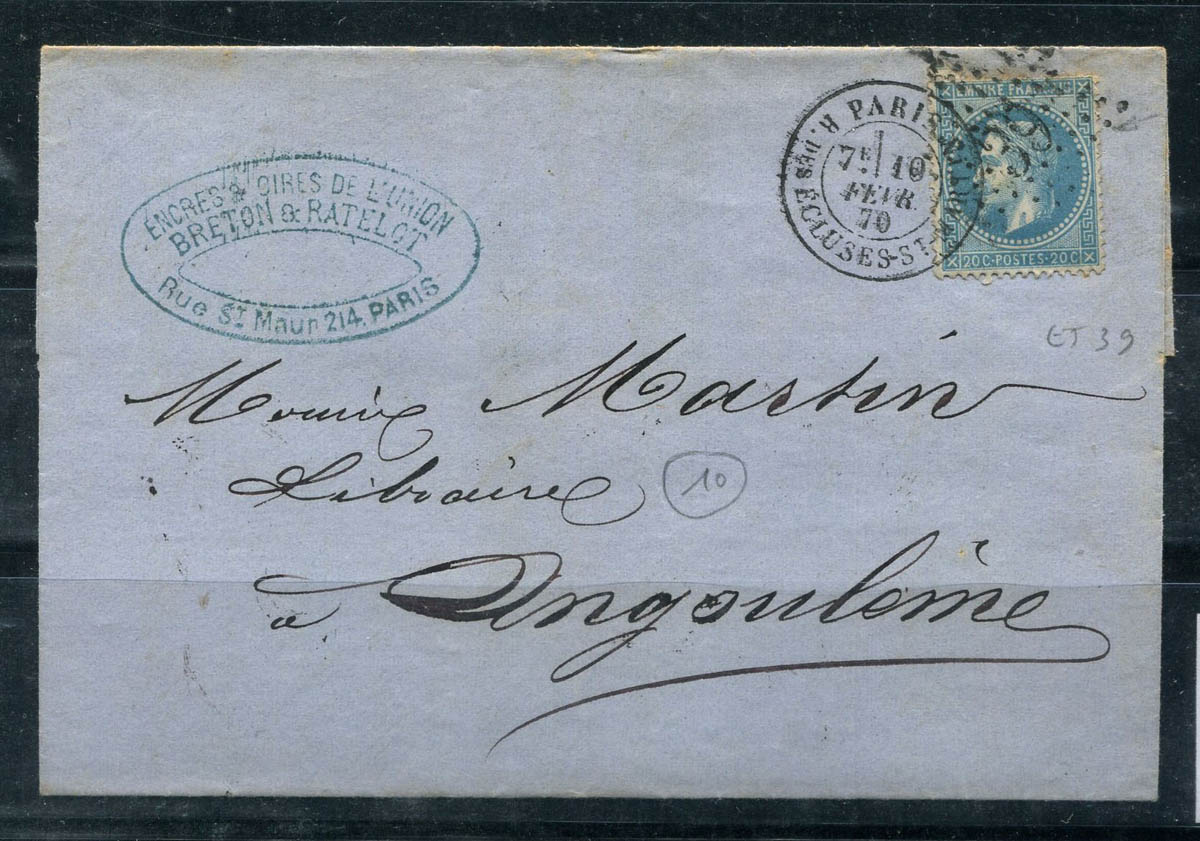 ENCRES & CIRES DE L'UNION
BRETON & RATELOT
Rue St Maur 214. PARIS
PARIS
R. DES ÉCLUSES-ST-MARTIN
7E 10
FEVR.
70
EMPIRE FRANÇAIS
20C-POSTES-20C
ET 39
Monsieur Martin
Libraire
10
à Angoulême